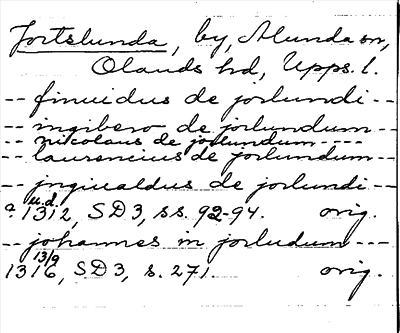 Jortslunda, by, Alunda sn,
Olands hd, Upps. l.
-- finuidus de jorlundi --
-- ingibero de jorlundum --
-- nicolaus de jorlundum ---
-- laurencius de jorlundum --
-- jngiualdus de jorlundi --
a. 1312, u.d. SD 3, ss. 92-94. orig.
-- johannes in jorludum ---
1316, 13/9 SD 3, s. 271. orig.